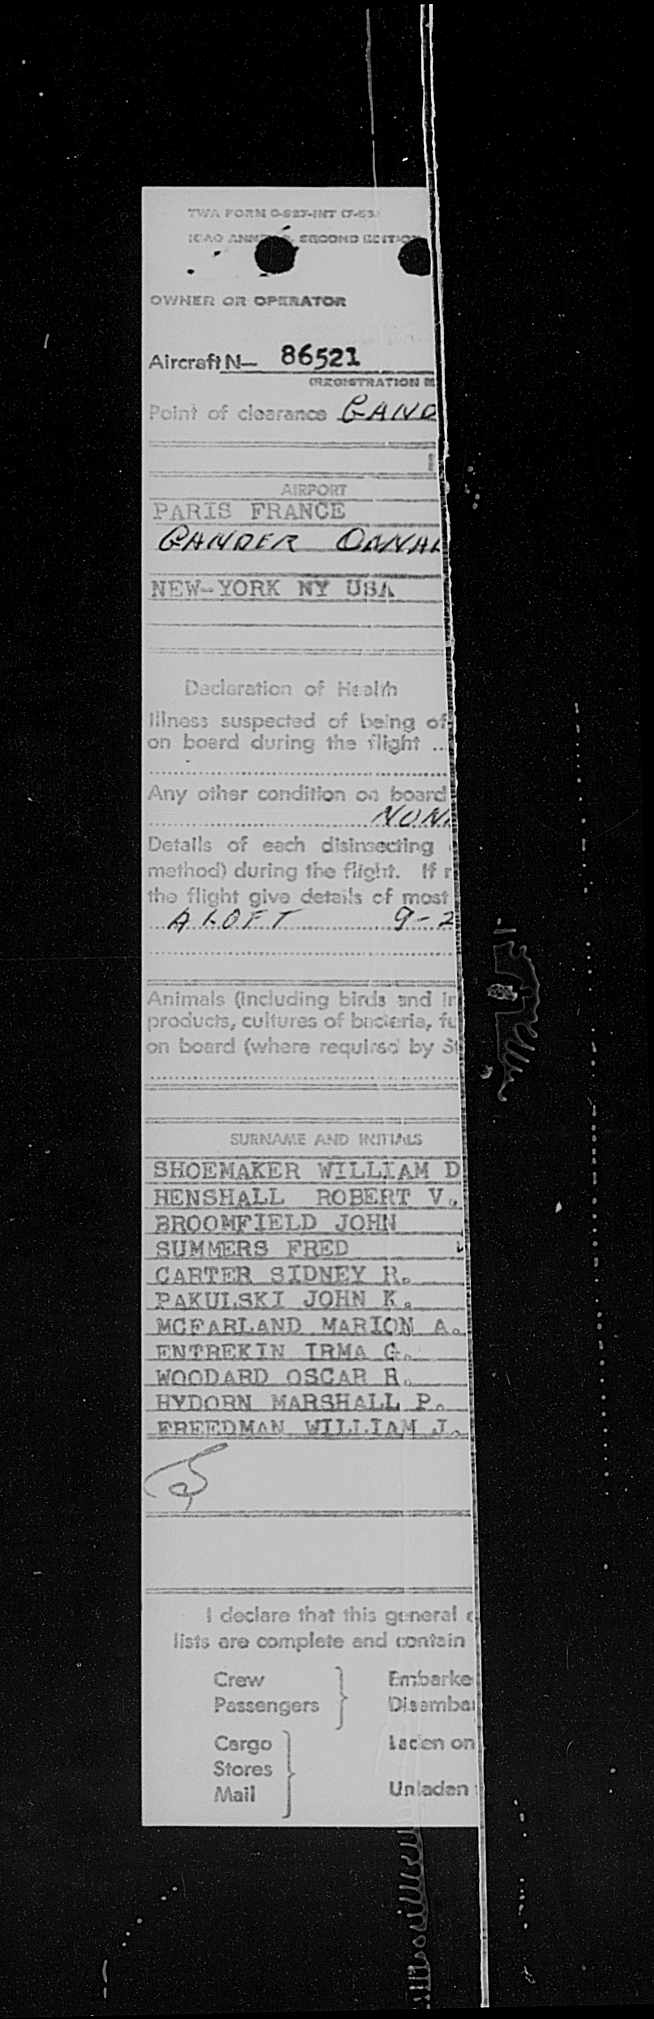 TWA FORM O-927-INT (7-53)
ICAO ANNEX 9, SECOND EDITION
OWNER OR OPERATOR
Aircraft N— 86521
(REGISTRATION M
Point of clearance GAND
AIRPORT
PARIS FRANCE
GANDER CANAD
NEW-YORK NY USA
Declaration of Health
Illness suspected of being of
on board during the flight ...
Any other condition on board
NON
Details of each disinsecting
method) during the flight. If r
the flight give details of most
ALOFT 9-2
Animals (including birds and in
products, cultures of bacteria, fu
on board (where required by St
SURNAME AND INITIALS
SHOEMAKER WILLIAM D
HENSHALL ROBERT V.
BROOMFIELD JOHN
SUMMERS FRED
CARTER SIDNEY R.
PAKULSKI JOHN K.
MCFARLAND MARION A.
ENTREKIN IRMA G.
WOODARD OSCAR R.
HYDORN MARSHALL P.
FREEDMAN WILLIAM J.
I declare that this general
lists are complete and contain
Crew Embarke
Passengers Disembar
Cargo Laden on
Stores
Mail Unladen